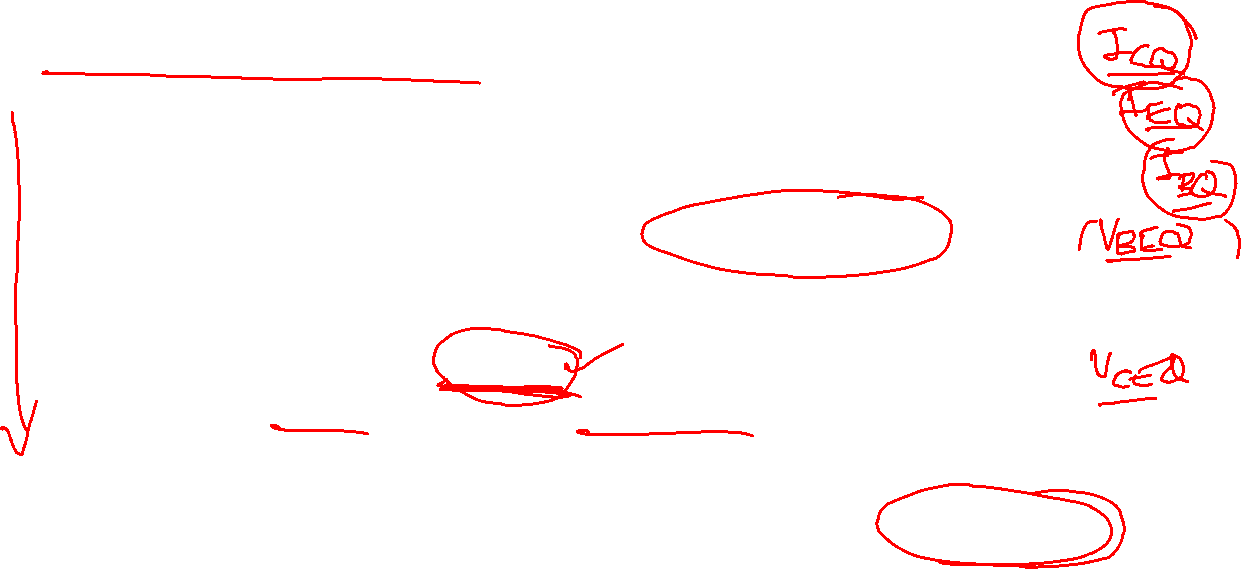 I_CQ
I_EQ
I_BQ
(V_BEQ)
V_CEQ